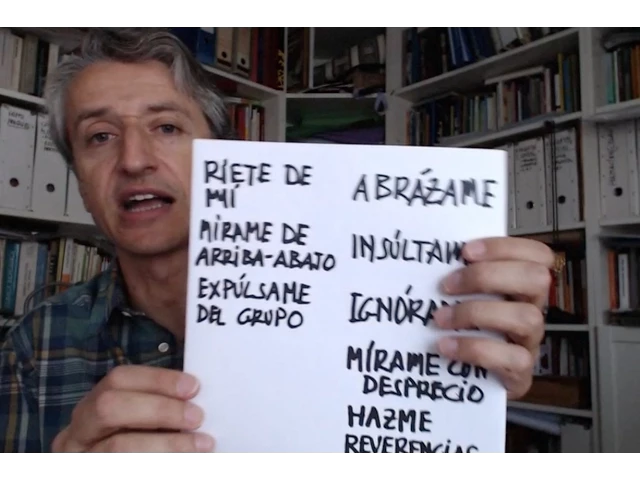 RÍETE DE
MÍ
MÍRAME DE
ARRIBA-ABAJO
EXPÚLSAME
DEL GRUPO
ABRÁZAME
INSÚLTAME
IGNÓRAME
MÍRAME CON
DESPRECIO
HAZME
REVERENCIAS